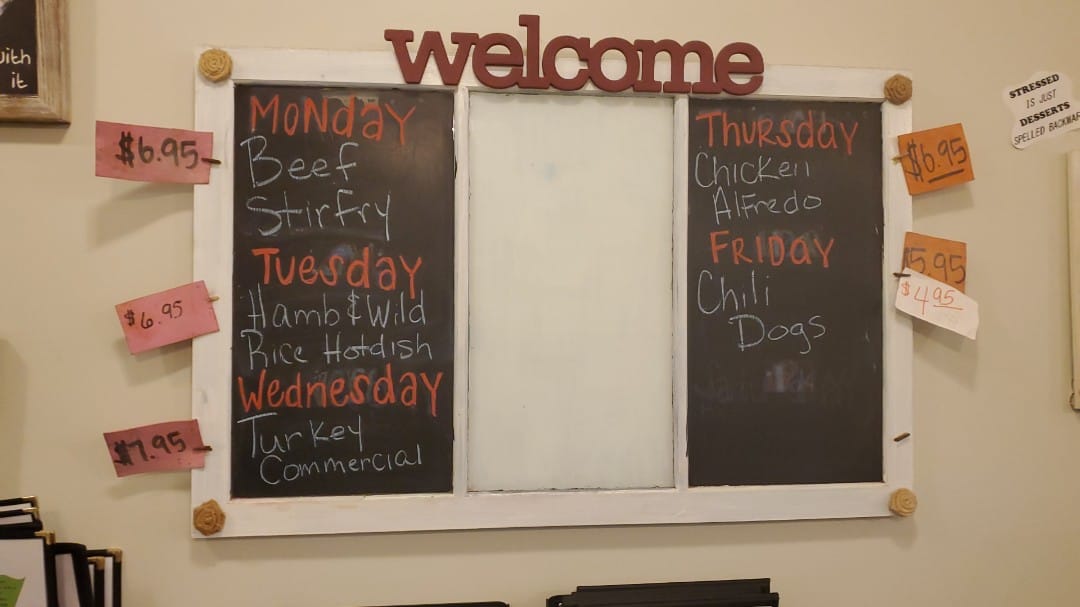 with
it
welcome
Monday
$6.95
Beef
Stir Fry
Tuesday
$6.95
Hamb & Wild
Rice Hotdish
Wednesday
$7.95
Turkey
Commercial
Thursday
$6.95
Chicken
Alfredo
Friday
5.95
$4.95
Chili
Dogs
STRESSED
IS JUST
DESSERTS
SPELLED BACKWAR